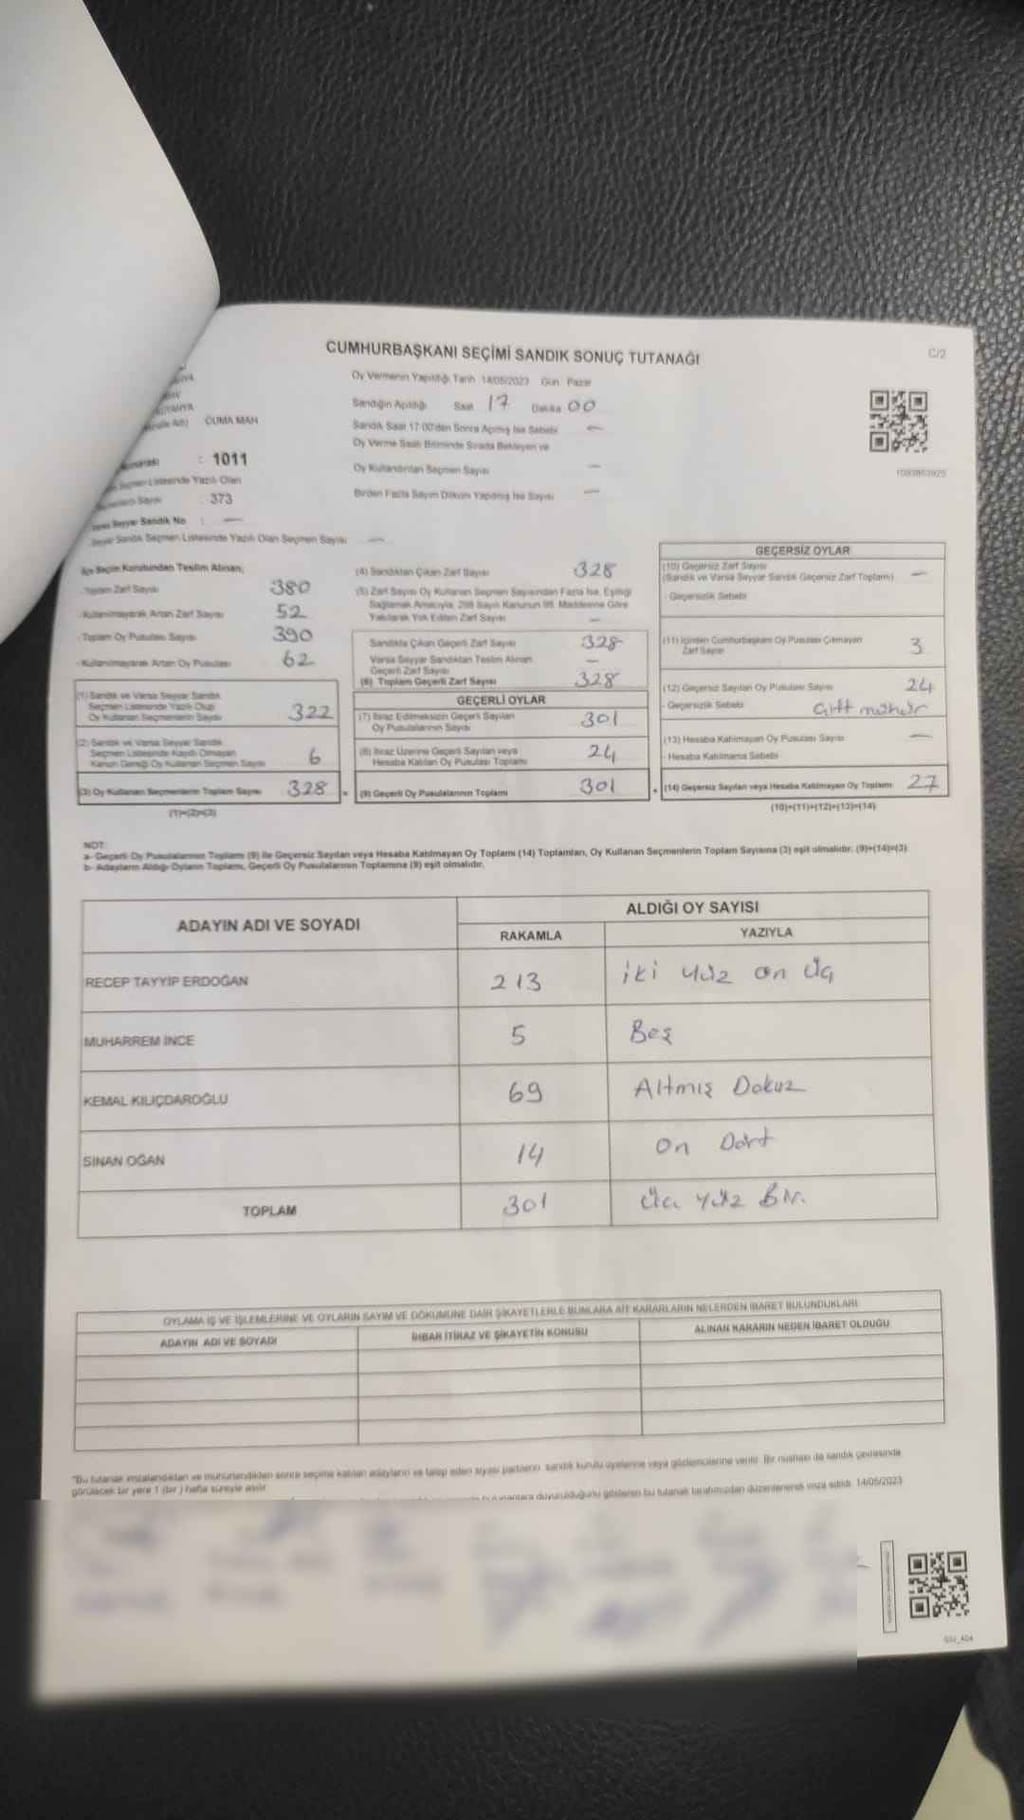 CUMHURBAŞKANI SEÇİMİ SANDIK SONUÇ TUTANAĞI
C/2
Oy Vermenin Yapıldığı Tarih 14/05/2023 Gün Pazar
Sandığın Açıldığı Saat 17 Dakika 00
Sandık Saat 17:00'den Sonra Açılmış İse Sebebi —
Oy Verme Saati Bitiminde Sırada Bekleyen ve
Oy Kullandırılan Seçmen Sayısı —
Birden Fazla Sayım Döküm Yapılmış İse Sayısı —
CUMA MAH
: 1011
Seçmen Listesinde Yazılı Olan
Seçmenlerin Sayısı : 373
Seyyar Sandık No : —
Seyyar Sandık Seçmen Listesinde Yazılı Olan Seçmen Sayısı —
İlçe Seçim Kurulundan Teslim Alınan;
Toplam Zarf Sayısı 380
- Kullanılmayarak Artan Zarf Sayısı 52
- Toplam Oy Pusulası Sayısı 390
- Kullanılmayarak Artan Oy Pusulası 62
(1) Sandık ve Varsa Seyyar Sandık
Seçmen Listesinde Yazılı Olup
Oy Kullanan Seçmenlerin Sayısı 322
(2) Sandık ve Varsa Seyyar Sandık
Seçmen Listesinde Kaydı Olmayan
Kanun Gereği Oy Kullanan Seçmen Sayısı 6
(3) Oy Kullanan Seçmenlerin Toplam Sayısı 328
(1)+(2)=(3)
(4) Sandıktan Çıkan Zarf Sayısı 328
(5) Zarf Sayısı Oy Kullanan Seçmen Sayısından Fazla İse, Eşitliği
Sağlamak Amacıyla, 298 Sayılı Kanunun 98. Maddesine Göre
Yakılarak Yok Edilen Zarf Sayısı —
Sandıkta Çıkan Geçerli Zarf Sayısı 328
Varsa Seyyar Sandıktan Teslim Alınan
Geçerli Zarf Sayısı —
(6) Toplam Geçerli Zarf Sayısı 328
GEÇERLİ OYLAR
(7) İtiraz Edilmeksizin Geçerli Sayılan
Oy Pusulalarının Sayısı 301
(8) İtiraz Üzerine Geçerli Sayılan veya
Hesaba Katılan Oy Pusulası Toplamı 24
= (9) Geçerli Oy Pusulalarının Toplamı 301
GEÇERSİZ OYLAR
(10) Geçersiz Zarf Sayısı
(Sandık ve Varsa Seyyar Sandık Geçersiz Zarf Toplamı) —
- Geçersizlik Sebebi
(11) İçinden Cumhurbaşkanı Oy Pusulası Çıkmayan
Zarf Sayısı 3
(12) Geçersiz Sayılan Oy Pusulası Sayısı 24
- Geçersizlik Sebebi çift mühür
(13) Hesaba Katılmayan Oy Pusulası Sayısı —
- Hesaba Katılmama Sebebi
+ (14) Geçersiz Sayılan veya Hesaba Katılmayan Oy Toplamı 27
(10)+(11)+(12)+(13)=(14)
NOT:
a- Geçerli Oy Pusulalarının Toplamı (9) ile Geçersiz Sayılan veya Hesaba Katılmayan Oy Toplamı (14) Toplamları, Oy Kullanan Seçmenlerin Toplam Sayısına (3) eşit olmalıdır. (9)+(14)=(3)
b- Adayların Aldığı Oyların Toplamı, Geçerli Oy Pusulalarının Toplamına (9) eşit olmalıdır.
ADAYIN ADI VE SOYADI
ALDIĞI OY SAYISI
RAKAMLA YAZIYLA
RECEP TAYYİP ERDOĞAN 213 iki yüz on üç
MUHARREM İNCE 5 Beş
KEMAL KILIÇDAROĞLU 69 Altmış Dokuz
SİNAN OĞAN 14 on Dört
TOPLAM 301 üç yüz bir.
OYLAMA İŞ VE İŞLEMLERİNE VE OYLARIN SAYIM VE DÖKÜMÜNE DAİR ŞİKAYETLERLE BUNLARA AİT KARARLARIN NELERDEN İBARET BULUNDUKLARI
ADAYIN ADI VE SOYADI İHBAR İTİRAZ VE ŞİKAYETİN KONUSU ALINAN KARARIN NEDEN İBARET OLDUĞU
*Bu tutanak imzalandıktan ve mühürlendikten sonra seçime katılan adayların ve talep eden siyasi partilerin sandık kurulu üyelerine veya gözlemcilerine verilir. Bir nüshası da sandık çevresinde
görülecek bir yere 1 (bir) hafta süreyle asılır.
duyurulduğunu gösteren bu tutanak tarafımızdan düzenlenerek imza edildi. 14/05/2023